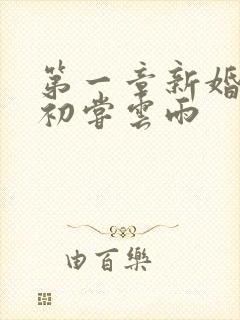 第一章新婚
初嘗雲雨
由百樂